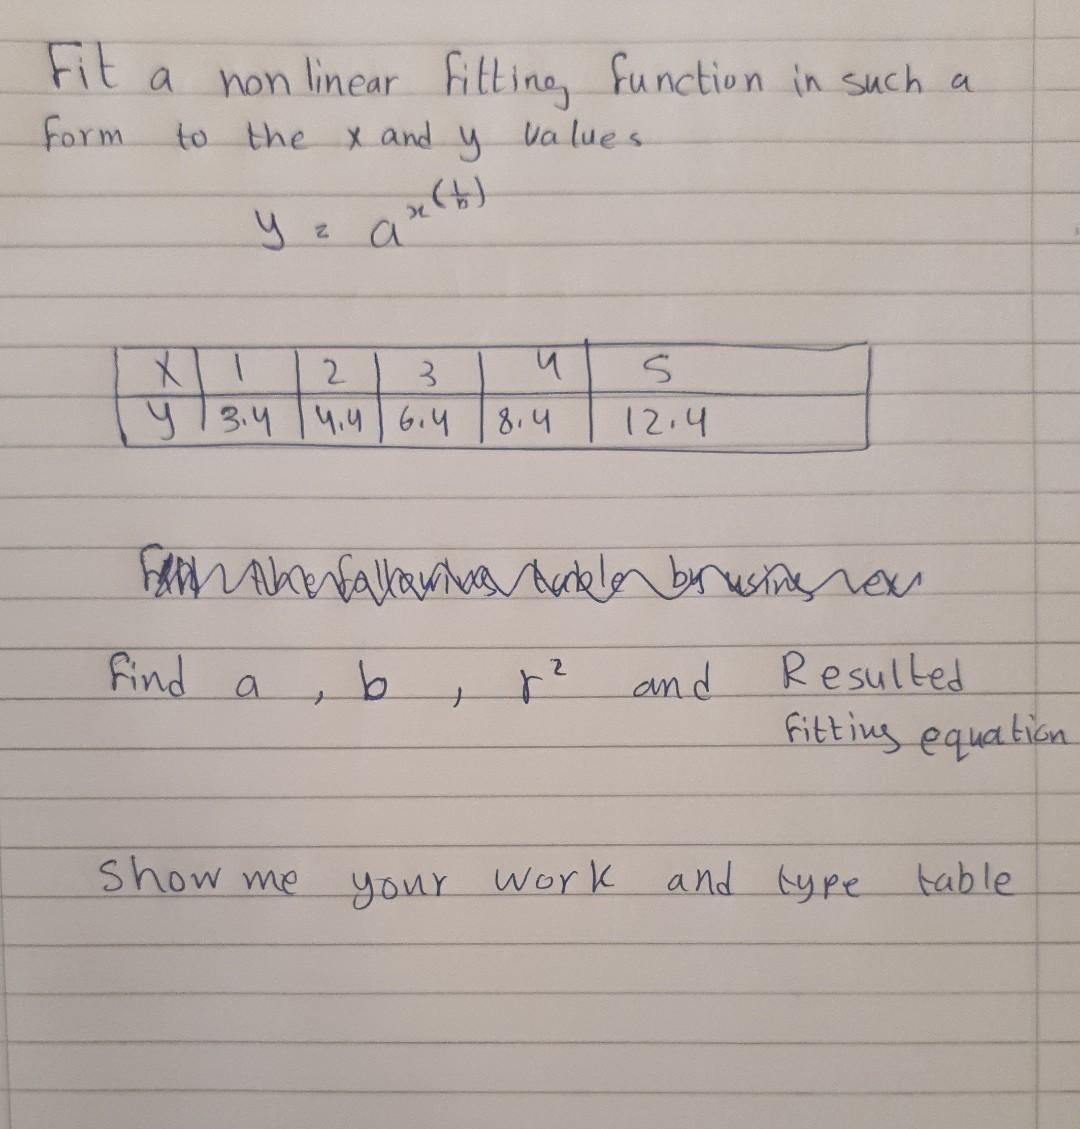 Fit a non linear fitting function in such a
form to the x and y values
y = a^x^(1/b)
X 1 2 3 4 5
y 3.4 4.4 6.4 8.4 12.4
find a , b , r² and Resulted
fitting equation
Show me your work and type table